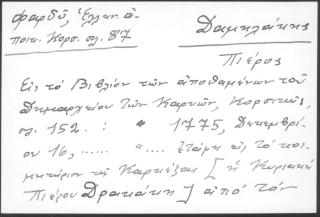 Φαρδύ, Ἑλλην. ἀ-
ποικ. Κορσ. σλ. 87
Δαμηλάκης
Πιέρος
Εἰς τὸ Βιβλίον τῶν ἀποθαμένων τοῦ
Δημαρχείου τῶν Καρυῶν, Κορσικῆς,
σλ. 152. : " 1775, Δεκεμβρί-
ου 16, ...... " .... ἐτάφη εἰς τὸ κοι-
μητήριον τῆς Καργκέζας [ ἡ Κυριακὴ
Πιέρου Δρακάκη ] ἀπὸ τὸ-